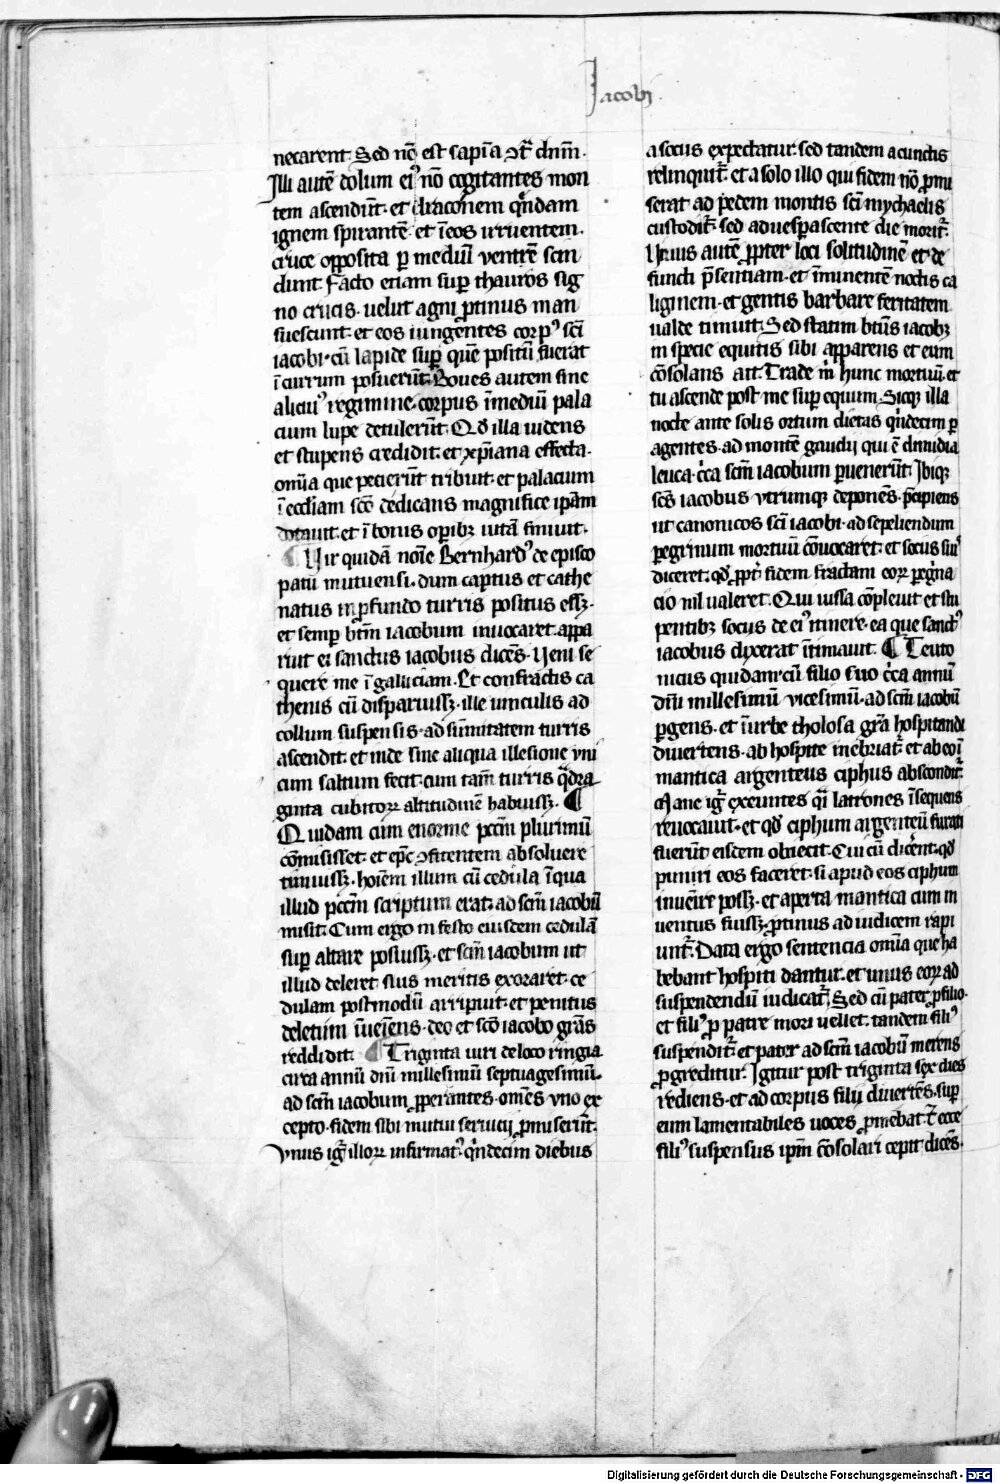 Jacobi
necarent. Sed nō est sapīa ꝯt̄ dnm̄.
Illi autē dolum eiꝰ nō cogitantes mon
tem ascendūt. et draconem q̄ndam
ignem spirantē. et ī eos irruentem.
cruce opposita ꝑ mediū ventrē scin
dunt. Facto etiam suꝑ thauros sig
no crucis. velut agni ꝓtinus man
suescunt. et eos iungentes corpꝰ scī
iacobi. cū lapide suꝑ quē positū fuerat
ī currum posuerūt. Boues autem sine
alicuiꝰ regimine. corpus ī mediū pala
cium lupe detulerūt. Qd̄ illa videns
et stupens credidit. et xp̄iana effecta.
om̄ia que pecierūt tribuit. et palacium
ī eccl̄iam scō dedicans magnifice ip̄am
dotauit. et ī bonis oꝑibꝫ vitā finiuit.
Vir quidā noīe Bernhardꝰ de episco
patu mutuensi. dum captus et cathe
natus in ꝓfundo turris positus essꝫ.
et semꝑ btm̄ iacobum inuocaret. appa
ruit ei sanctus iacobus dicēs. Veni se
quere me ī galliciam. Et confractis ca
thenis cū disparuissꝫ. ille vinculis ad
collum suspensis. ad sūmitatem turris
ascendit. et inde sine aliqua illesione vni
cum saltum fecit. cum tam̄ turris q̄dra
ginta cubitoꝝ altitudinē habuissꝫ. ¶
Quidam cum enorme pccm̄ plurimū
cōmisisset. et ep̄c ꝯfitentem absoluere
timuissꝫ. hoīem illum cū cedula ī qua
illud pccm̄ scriptum erat. ad scm̄ iacobū
misit. Cum ergo in festo eiusdem cedulā
suꝑ altare posuissꝫ. et scm̄ iacobum ut
illud deleret suis meritis exoraret. ce
dulam postmodū arripuit. et penitus
deletum īueiens. deo et scō iacobo grās
reddidit. ¶ Triginta viri de loco ringia
circa annū dnī millesimū septuagesimū.
ad scm̄ iacobum ꝓꝑantes. om̄es vno ex
cepto. fidem sibi mutui seruicij ꝓmiserūt.
Vnus igr̄ illoꝝ infirmatꝰ. q̄ndecim diebus
a sociis expectatur. sed tandem a cunctis
relinquit̄. et a solo illo qui fidem nō ꝓmi
serat ad pedem montis scī mychaelis
custodit̄. sed aduesꝑascente die morit̄.
Viuus autē ꝓpter loci solitudinē et de
functi p̄sentiam. et īminentē noctis ca
liginem. et gentis barbare feritatem
valde timuit. Sed statim btūs iacobꝫ
in specie equitis sibi apparens et eum
cōsolans ait. Trade m̄ hunc mortuū. et
tu ascende post me suꝑ equum. Sicqꝫ illa
nocte ante solis ortum dietas q̄ndecim ꝑ
agentes. ad montē gaudij qui ē dimidia
leuca. c̄ca scm̄ iacobum ꝑuenerūt. Ibiqꝫ
scs̄ iacobus vtrumqꝫ deponēs. p̄cipiens
ut canonicos scī iacobi. ad sepeliendum
ꝑegrinum mortuū cōuocaret. et sociis suis
diceret. qd̄ ꝓpt̄ fidem fractam eoꝝ ꝑeg̓na
cio nil valeret. Qui iussa cōpleuit et stu
pentibꝫ sociis de eiꝰ itinere. ea que sanctꝰ
iacobus dixerat ītimauit. ¶ Teuto
nicus quidam. cū filio suo c̄ca annū
dnī millesimū vicesimū. ad scm̄ iacobū
ꝑgens. et ī vrbe tholosa grā hospitandi
diuertens. ab hospite inebriat̄. et ab eoī
mantica argenteus ciphus abscondit̄.
Mane igr̄ exeuntes q̄i latrones īsequens
reuocauit. et qd̄ ciphum argenteū furati
fuerūt eisdem obiecit. Cui cū dicerēt. qd̄
puniri eos faceret. si apud eos ciphum
inueīre possꝫ. et aperta mantica cum in
uentus fuissꝫ. ꝓtinus ad iudicem rapi
unt̄. Data ergo sentencia om̄ia que ha
bebant hospiti dantur. et vnus eoꝝ ad
suspendendū iudicat̄. Sed cū pater ꝓ filio.
et filiꝰ ꝓ patre mori vellet. tandem filiꝰ
suspendit̄. et pater ad scm̄ iacobū merens
ꝓgreditur. Igitur post triginta sex dies
rediens. et ad corpus filij diuertēs. suꝑ
eum lamentabiles voces ꝓmebat. et̄ ecce
filiꝰ suspensus ip̄m cōsolari cepit dicēs.
Digitalisierung gefördert durch die Deutsche Forschungsgemeinschaft - DFG